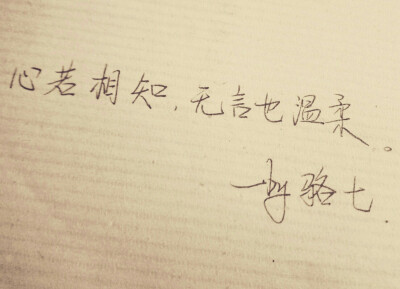 心若相知,无言也温柔。
骆七